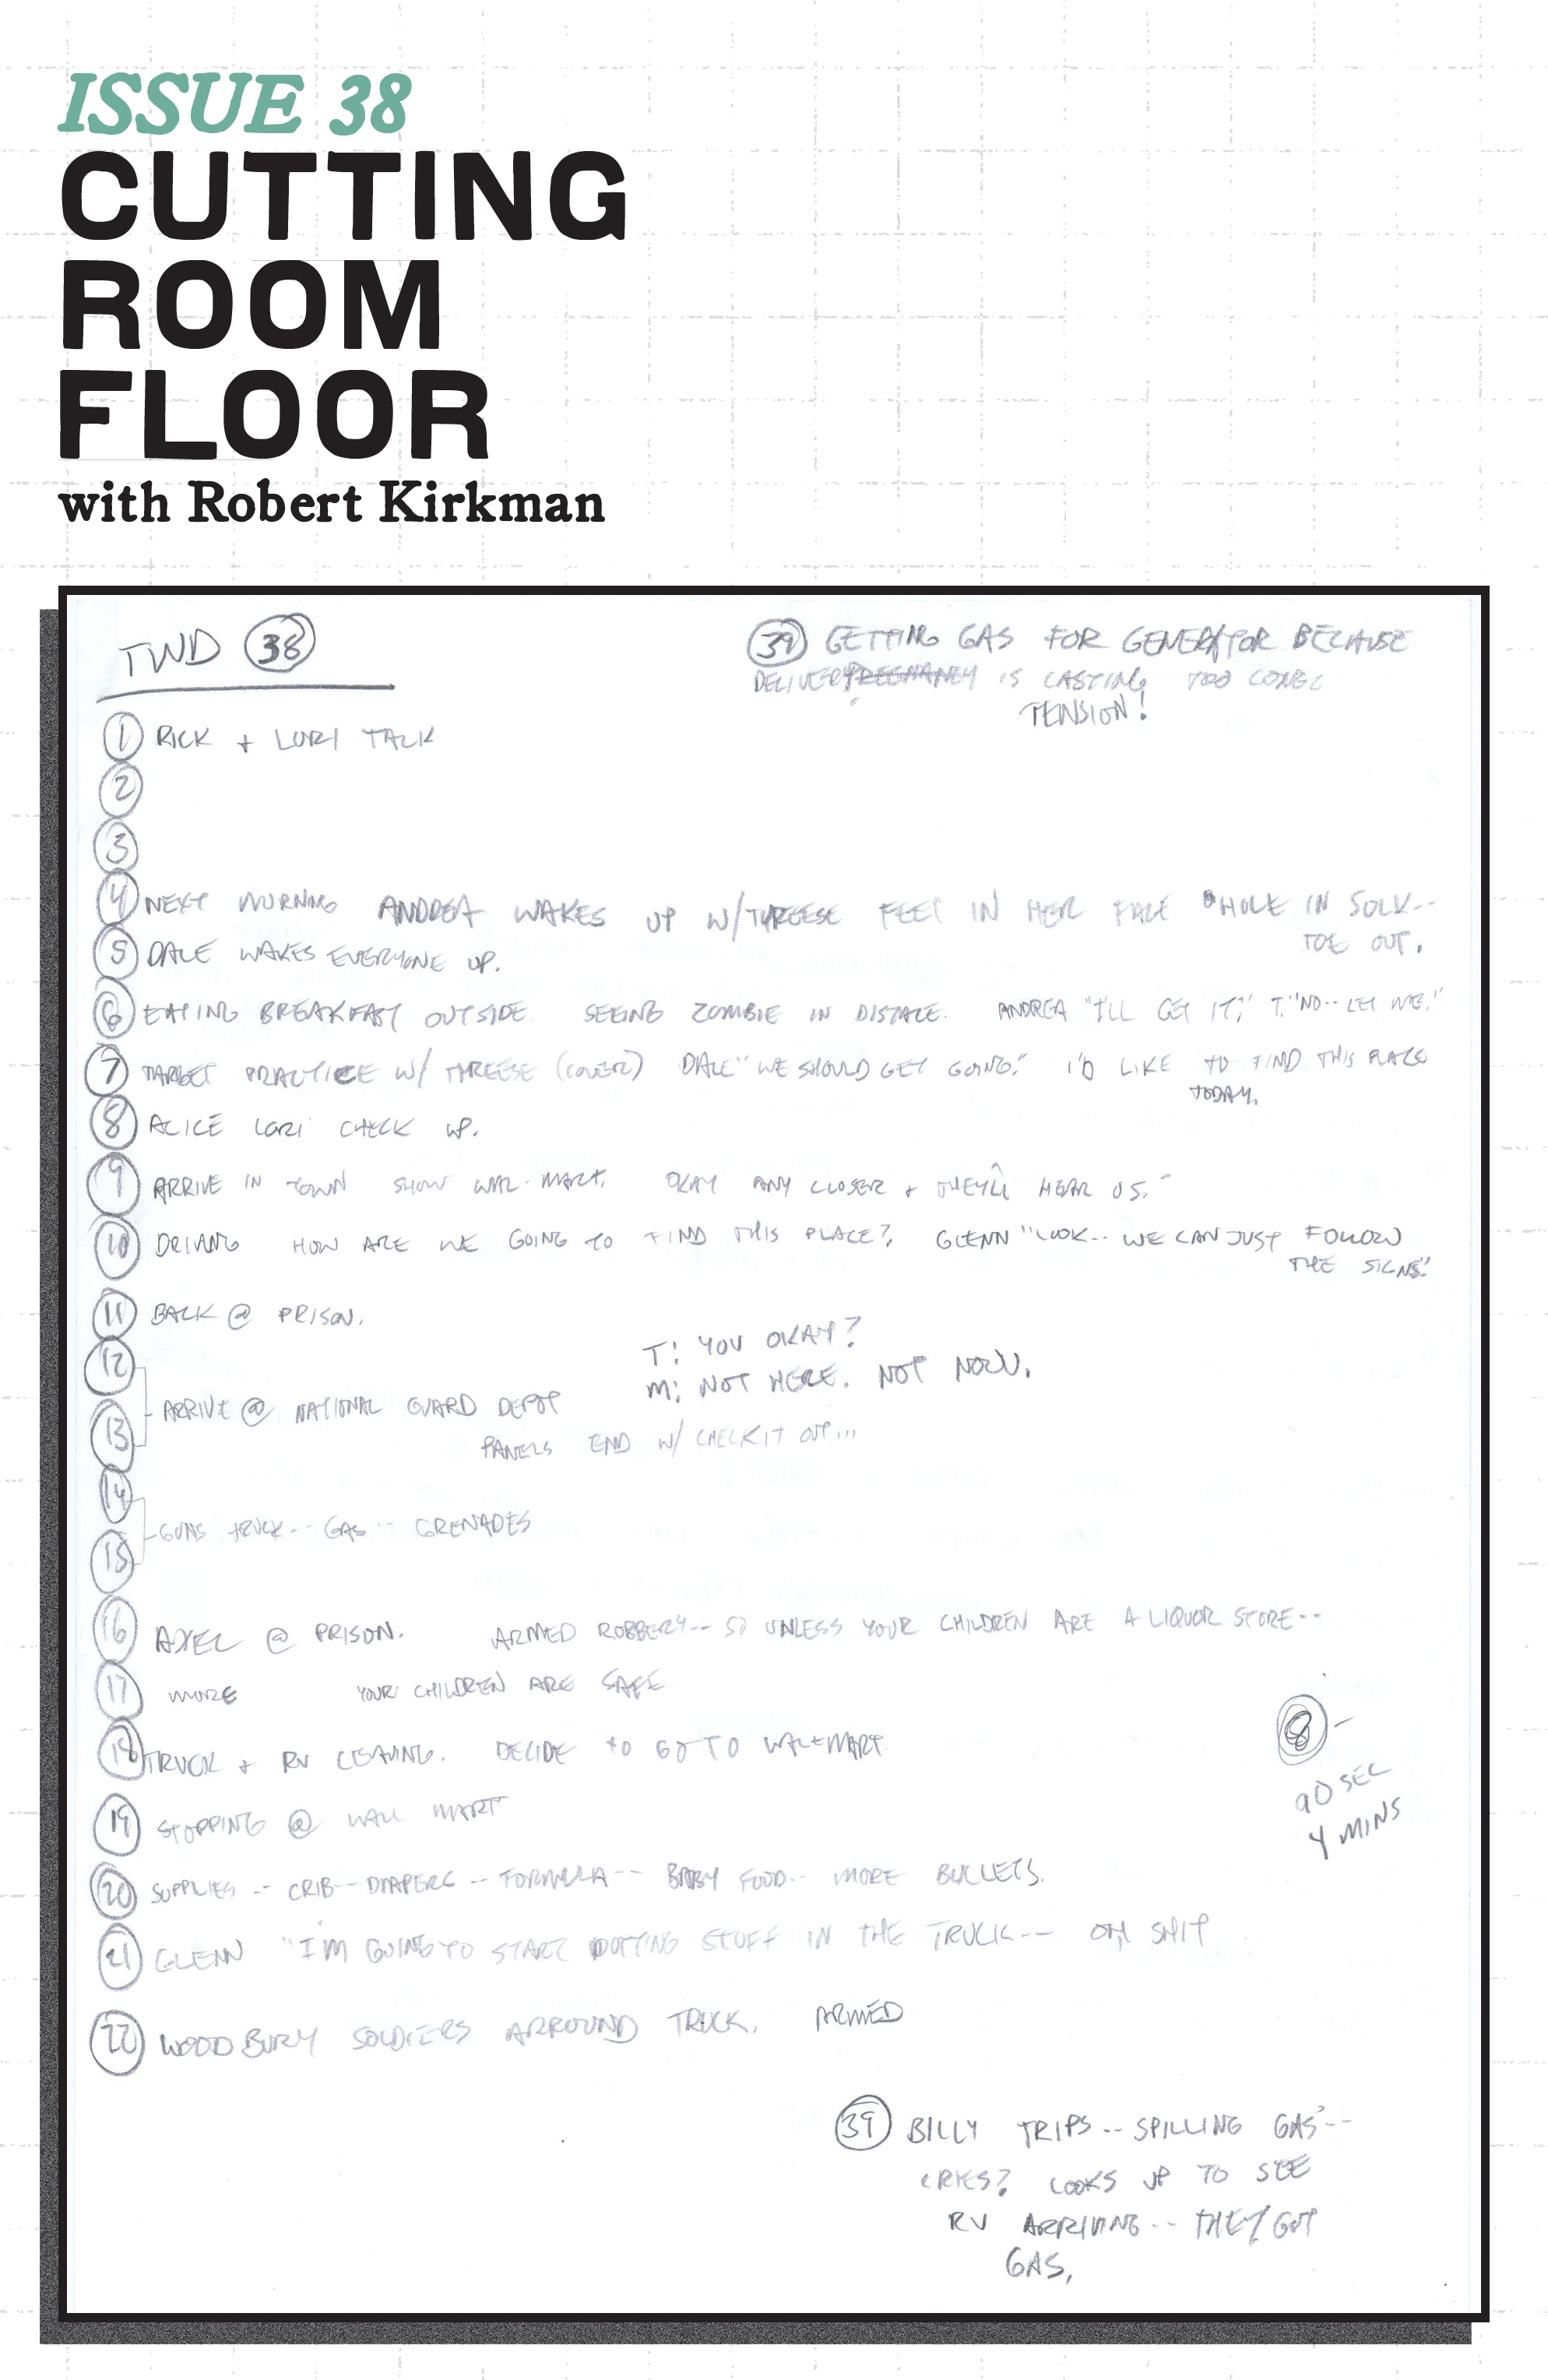 ISSUE 38
CUTTING
ROOM
FLOOR
with Robert Kirkman
TWD 38
39 GETTING GAS FOR GENERATOR BECAUSE
DELIVERY PREGNANCY IS LASTING TOO LONG
TENSION!
1 RICK + LORI TALK
2
3
4 NEXT MORNING ANDREA WAKES UP W/THREESE FEET IN HER FACE HOLE IN SOCK--
TOE OUT.
5 DALE WAKES EVERYONE UP.
6 EATING BREAKFAST OUTSIDE. SEEING ZOMBIE IN DISTACE. ANDREA "I'LL GET IT," T. "NO-- LET ME."
7 TARGET PRACTICE W/ THREESE (COVER) DALE "WE SHOULD GET GOING." I'D LIKE TO FIND THIS PLACE
TODAY.
8 ALICE LORI CHECK UP.
9 ARRIVE IN TOWN SHOW WAL-MART. OKAY ANY CLOSER + THEY'LL HEAR US."
10 DRIVING HOW ARE WE GOING TO FIND THIS PLACE?, GLENN "LOOK-- WE CAN JUST FOLLOW
THE SIGNS."
11 BACK @ PRISON.
T: YOU OKAY?
M: NOT HERE. NOT NOW.
12
13
ARRIVE @ NATIONAL GUARD DEPOT
PANELS END W/ CHECK IT OUT...
14
15
GUNS TRUCK-- GAS-- GRENADES
16 AXEL @ PRISON. ARMED ROBBERY-- SO UNLESS YOUR CHILDREN ARE A LIQUOR STORE--
17 MORE YOUR CHILDREN ARE SAFE
18 TRUCK + RV LEAVING. DECIDE TO GO TO WAL-MART.
8 -
90 SEC
4 MINS
19 STOPPING @ WALL MART
20 SUPPLIES -- CRIB-- DIAPERS -- FORMULA-- BABY FOOD-- MORE BULLETS.
21 GLENN "I'M GOING TO START PUTTING STUFF IN THE TRUCK-- OH, SHIT
22 WOODBURY SOLDIERS ARROUND TRUCK. ARMED
39 BILLY TRIPS-- SPILLING GAS--
CRIES? LOOKS UP TO SEE
RV ARRIVING-- THEY GOT
GAS,